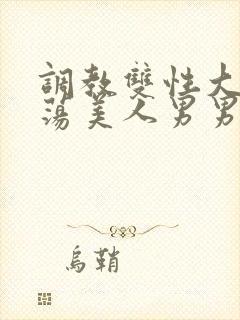 調教雙性大
蕩美人男男
烏鞘